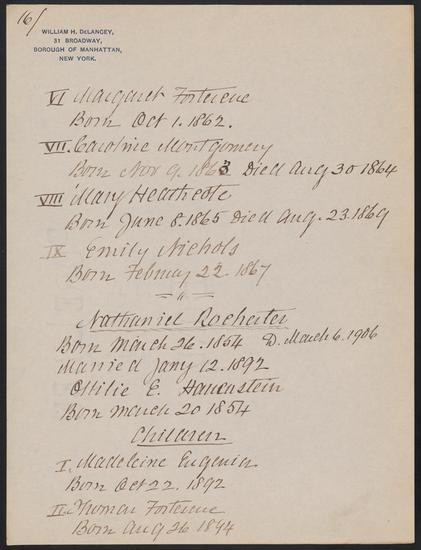 16/
WILLIAM H. DELANCEY,
31 BROADWAY,
BOROUGH OF MANHATTAN,
NEW YORK.
VI Margaret Forterene
Born Oct 1. 1862.
VII. Caroline Montgomery
Born Nov 9. 1863 Died Aug 30 1864
VIII Mary Heathcote
Born June 8. 1865 Died Aug. 23. 1869
IX Emily Nichols
Born Febuary 22. 1867
Nathaniel Rochester
Born March 26. 1854 D. March 6. 1906
Married Jany 12. 1892
Ottilie E. Hauenstein
Born March 20 1854
Children
I. Madeleine Eugenia
Born Oct 22. 1892
II. Thomas Forterene
Born Aug 26 1894